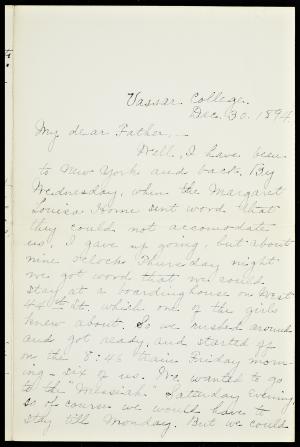 Vassar College.
Dec. 30. 1894.
My dear Father,—
Well, I have been
to New York and back. By
Wednesday, when the Margaret
Louisa Home sent word that
they could not accomodate
us, I gave up going, but about
nine o'clock Thursday night
we got word that we could
stay at a boarding house on West
44th St., which one of the girls
knew about. So we rushed around
and got ready, and started off
on the 8:45 train Friday morn-
ing - six of us. We wanted to go
to the "Messiah" Saturday evening,
so of course we would have to
stay till Monday. But we could